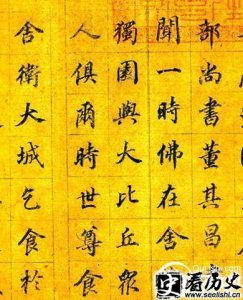 部尚書董其昌
聞一時佛在舍
獨園與大比丘衆
人俱爾時世尊食
舍衛大城乞食於
看历史
www.seelishi.cn